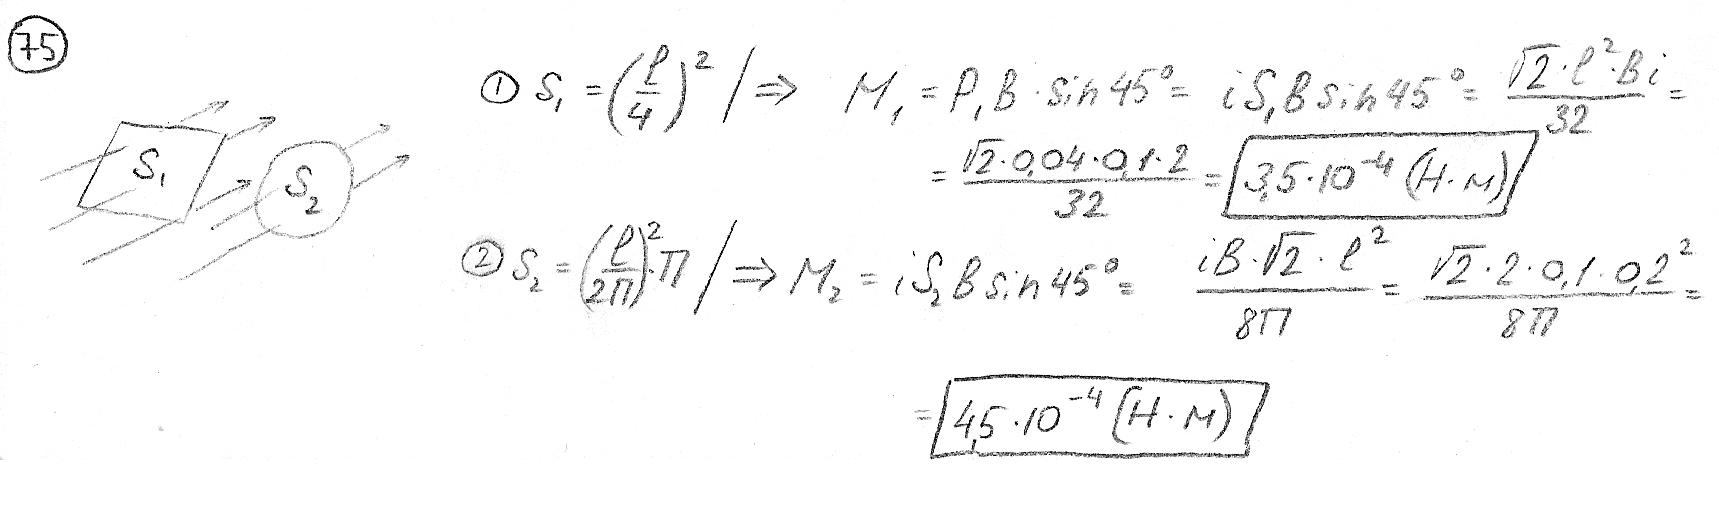 75
① S₁ = (l/4)² / ⇒ M₁ = P₁B · sin 45° = iS₁B sin 45° = √2 · l² · Bi / 32 =
= √2 · 0,04 · 0,1 · 2 / 32 = 3,5 · 10⁻⁴ (Н · м)
S₁ S₂
② S₂ = (l/2π)² · π / ⇒ M₂ = iS₂B sin 45° = iB · √2 · l² / 8π = √2 · 2 · 0,1 · 0,2² / 8π =
= 4,5 · 10⁻⁴ (Н · м)